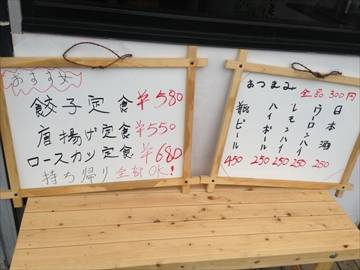 おすすめ
餃子定食 ¥580
唐揚げ定食 ¥550
ロースカツ定食 ¥680
持ち帰り全部OK!
おつまみ
全品300円
日本酒
ウーロンハイ 250
レモンハイ 250
ハイボール 250
瓶ビール 450